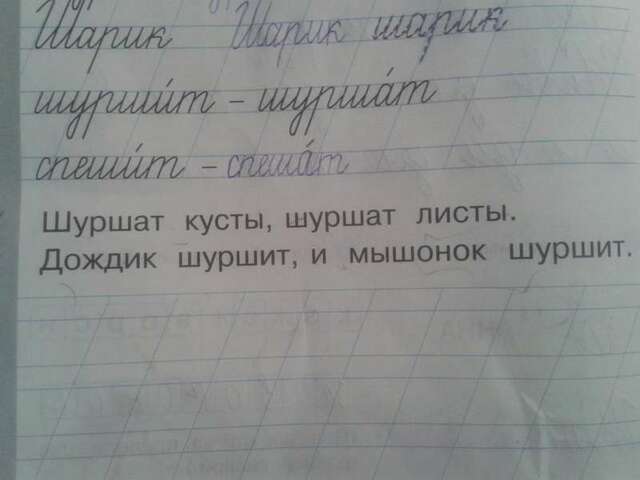 Шарик Шарик шарик
шурши́т – шурша́т
спеши́т – спеша́т
Шуршат кусты, шуршат листы.
Дождик шуршит, и мышонок шуршит.